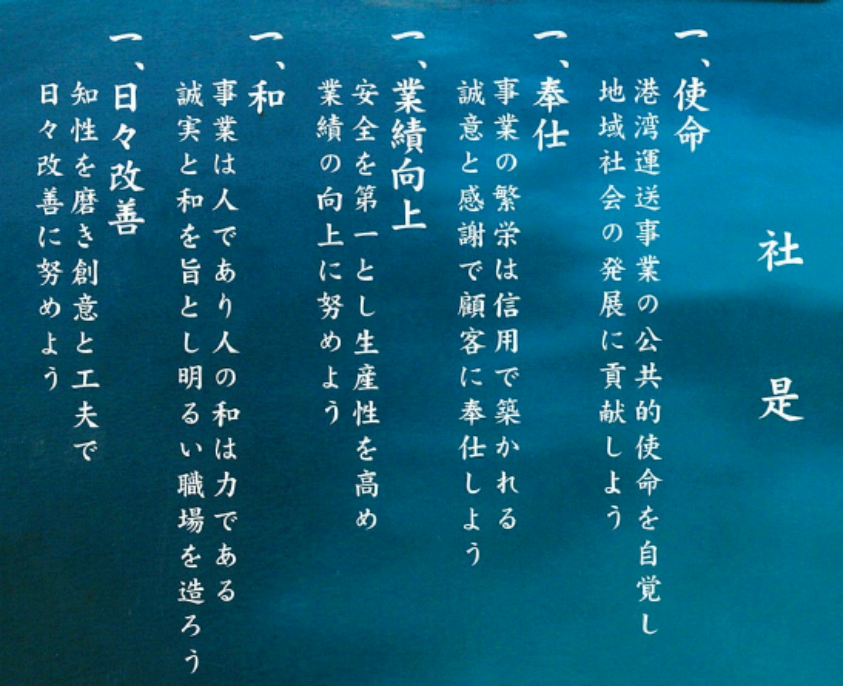 社是
一、使命
港湾運送事業の公共的使命を自覚し
地域社会の発展に貢献しよう
一、奉仕
事業の繁栄は信用で築かれる
誠意と感謝で顧客に奉仕しよう
一、業績向上
安全を第一とし生産性を高め
業績の向上に努めよう
一、和
事業は人であり人の和は力である
誠実と和を旨とし明るい職場を造ろう
一、日々改善
知性を磨き創意と工夫で
日々改善に努めよう